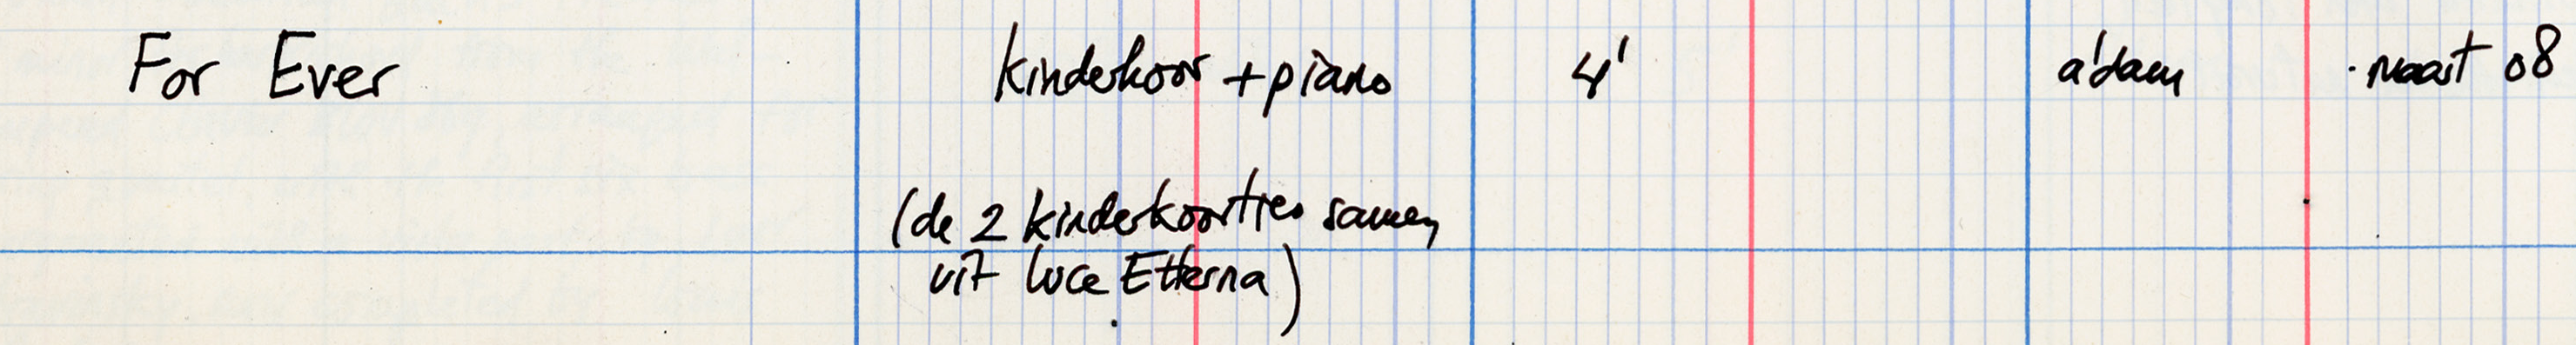 For Ever kinderkoor + piano 4' a'dam maart 08
(de 2 kinderkoortjes samen,
uit luce Etterna)